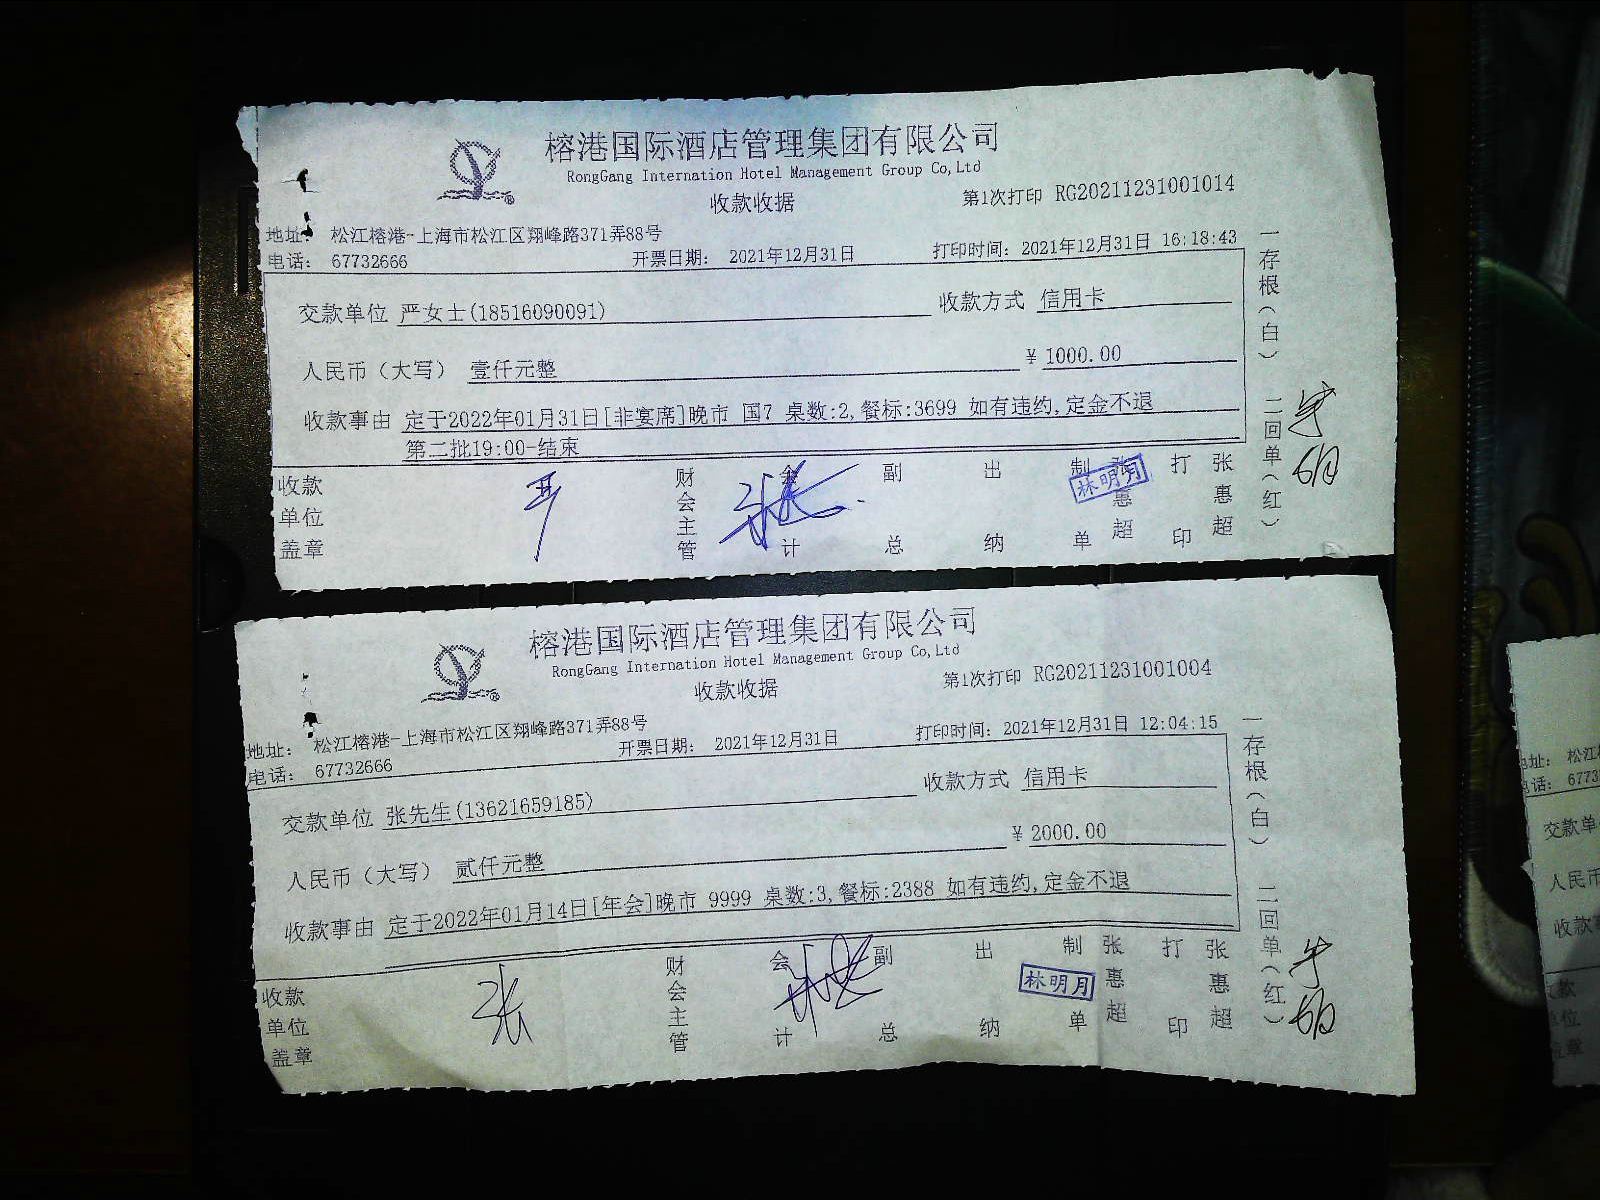 榕港国际酒店管理集团有限公司
RongGang Internation Hotel Management Group Co,Ltd
收款收据
第1次打印 RG20211231001014
地址： 松江榕港-上海市松江区翔峰路371弄88号
电话： 67732666
开票日期： 2021年12月31日
打印时间： 2021年12月31日 16:18:43
交款单位 严女士(18516090091)
收款方式 信用卡
人民币（大写） 壹仟元整
¥ 1000.00
收款事由 定于2022年01月31日[非宴席]晚市 国7 桌数:2,餐标:3699 如有违约,定金不退
第二批19:00-结束
收款单位盖章
财会主管
会计
副总
出纳
制单
张惠超
林明月
打印
张惠超
一存根（白） 二回单（红）
榕港国际酒店管理集团有限公司
RongGang Internation Hotel Management Group Co,Ltd
收款收据
第1次打印 RG20211231001004
地址： 松江榕港-上海市松江区翔峰路371弄88号
电话： 67732666
开票日期： 2021年12月31日
打印时间： 2021年12月31日 12:04:15
交款单位 张先生(13621659185)
收款方式 信用卡
人民币（大写） 贰仟元整
¥ 2000.00
收款事由 定于2022年01月14日[年会]晚市 9999 桌数:3,餐标:2388 如有违约,定金不退
收款单位盖章
张
财会主管
会计
副总
出纳
制单
林明月
张惠超
打印
张惠超
一存根（白） 二回单（红）
地址： 松江
电话： 6773
交款单
人民币
收款